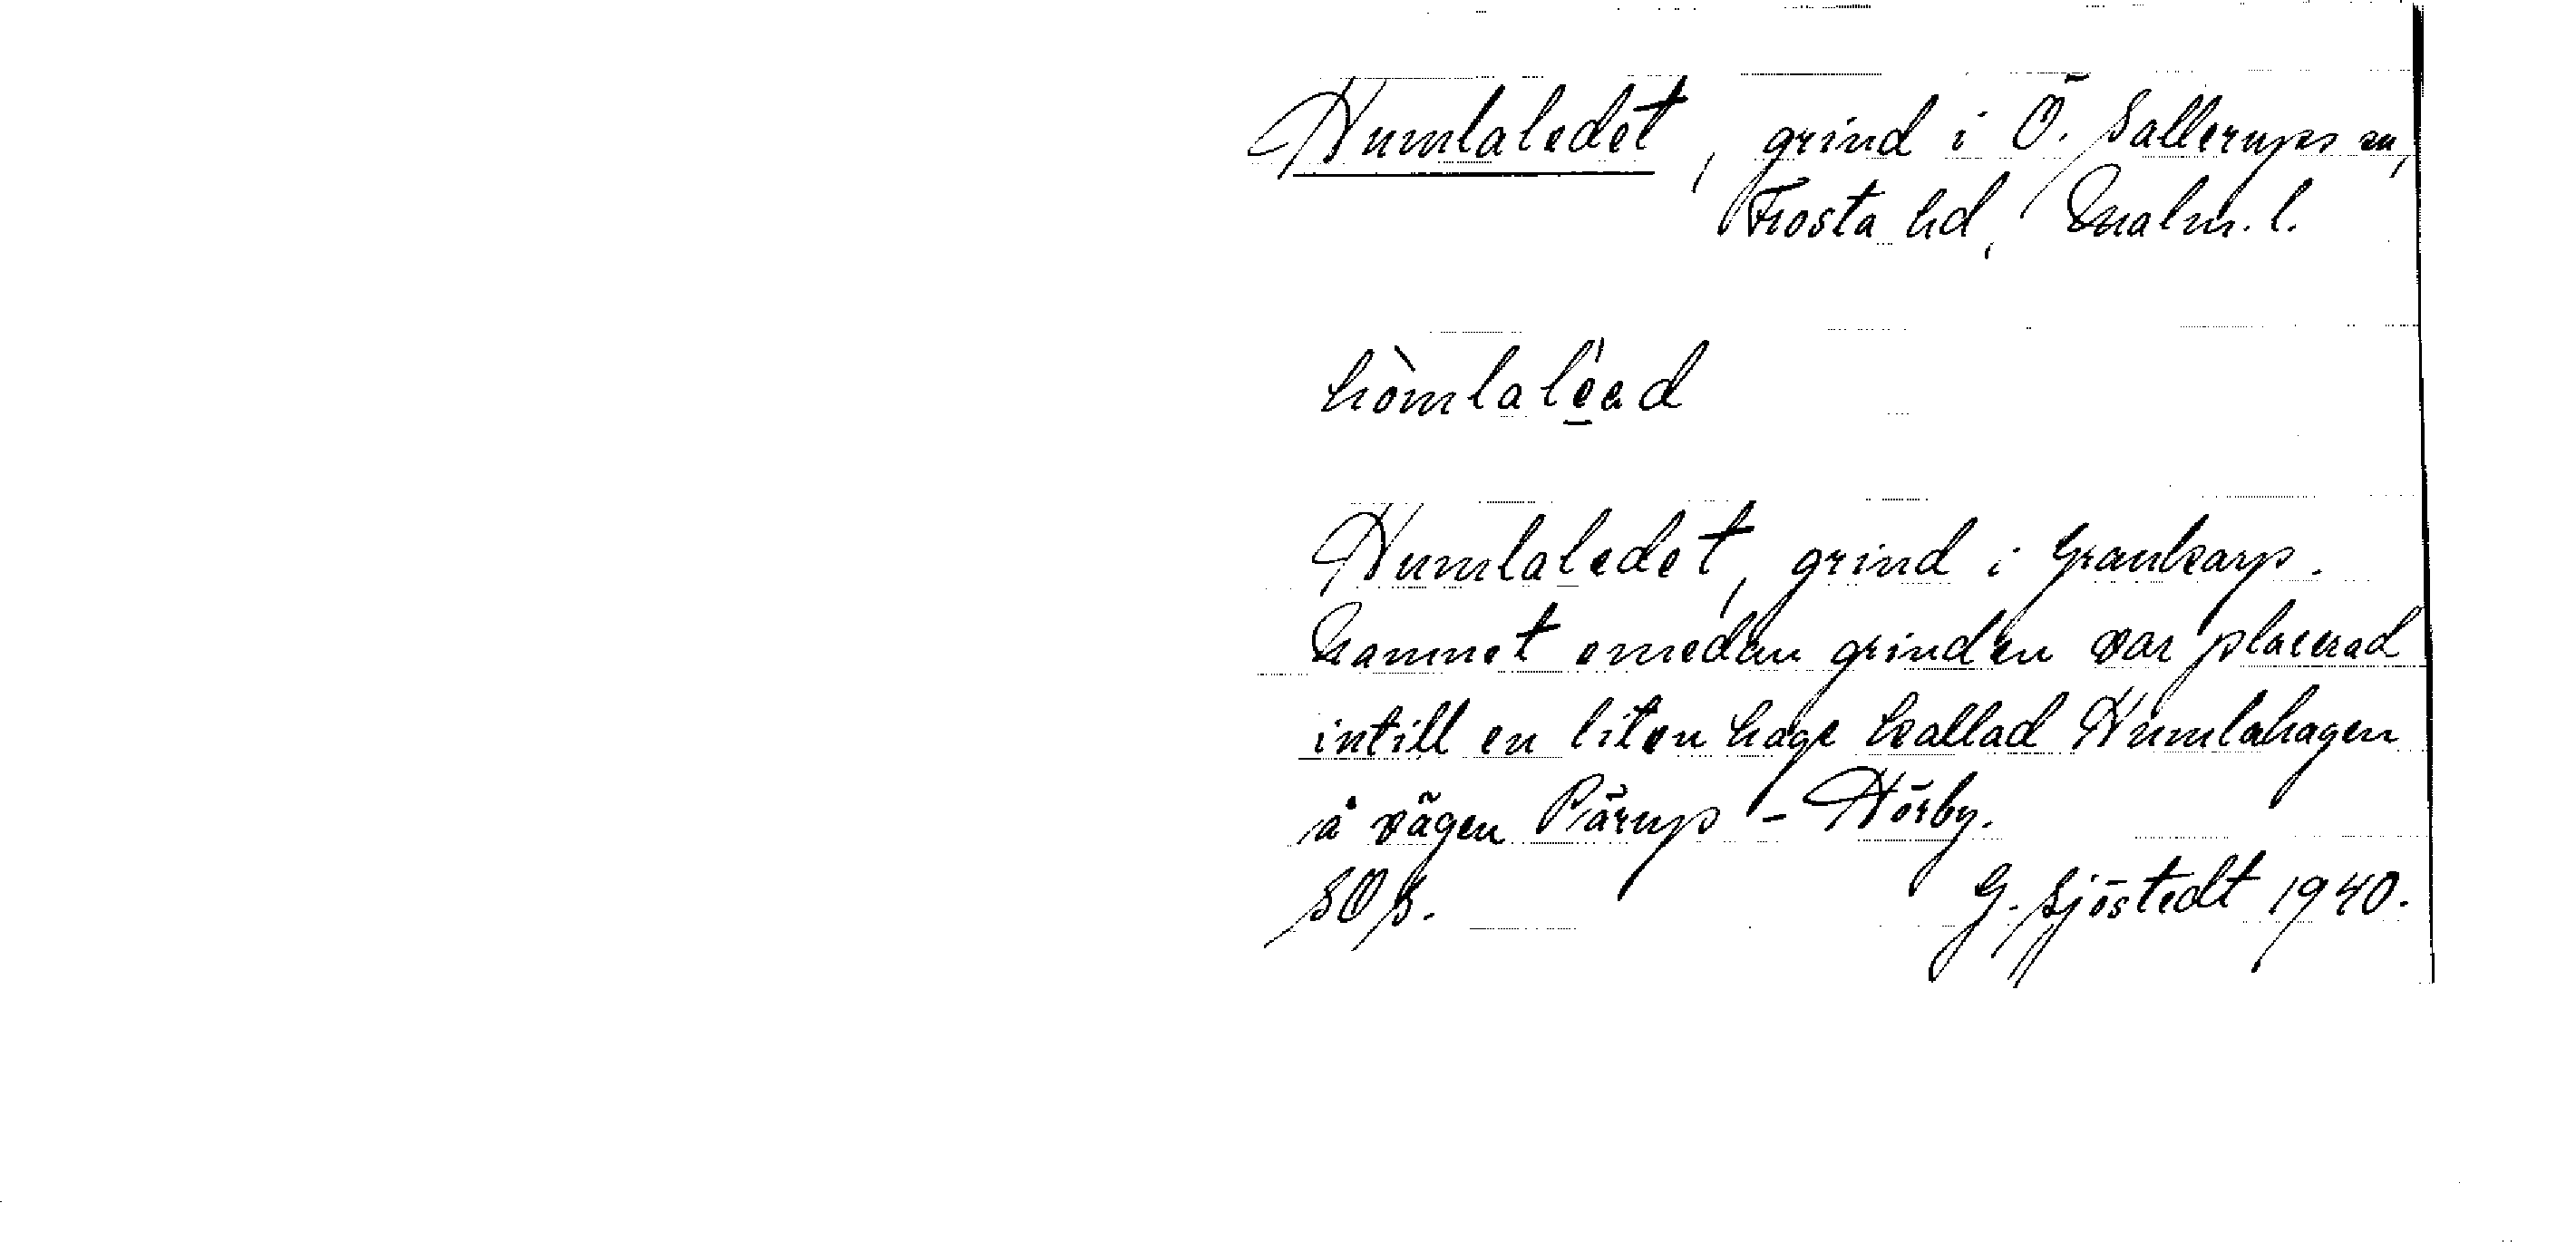 Humlaledet, grind i Ö. Sallerups sn,
Frosta hd, Malm. l.
hòmlaléed
Humlaledet, grind i Grankarp.
Namnet emedan grinden var placerad
intill en liten hage kallad Humlahagen
å vägen Pärup - Hörby.
SOS. G. Sjöstedt 1940.